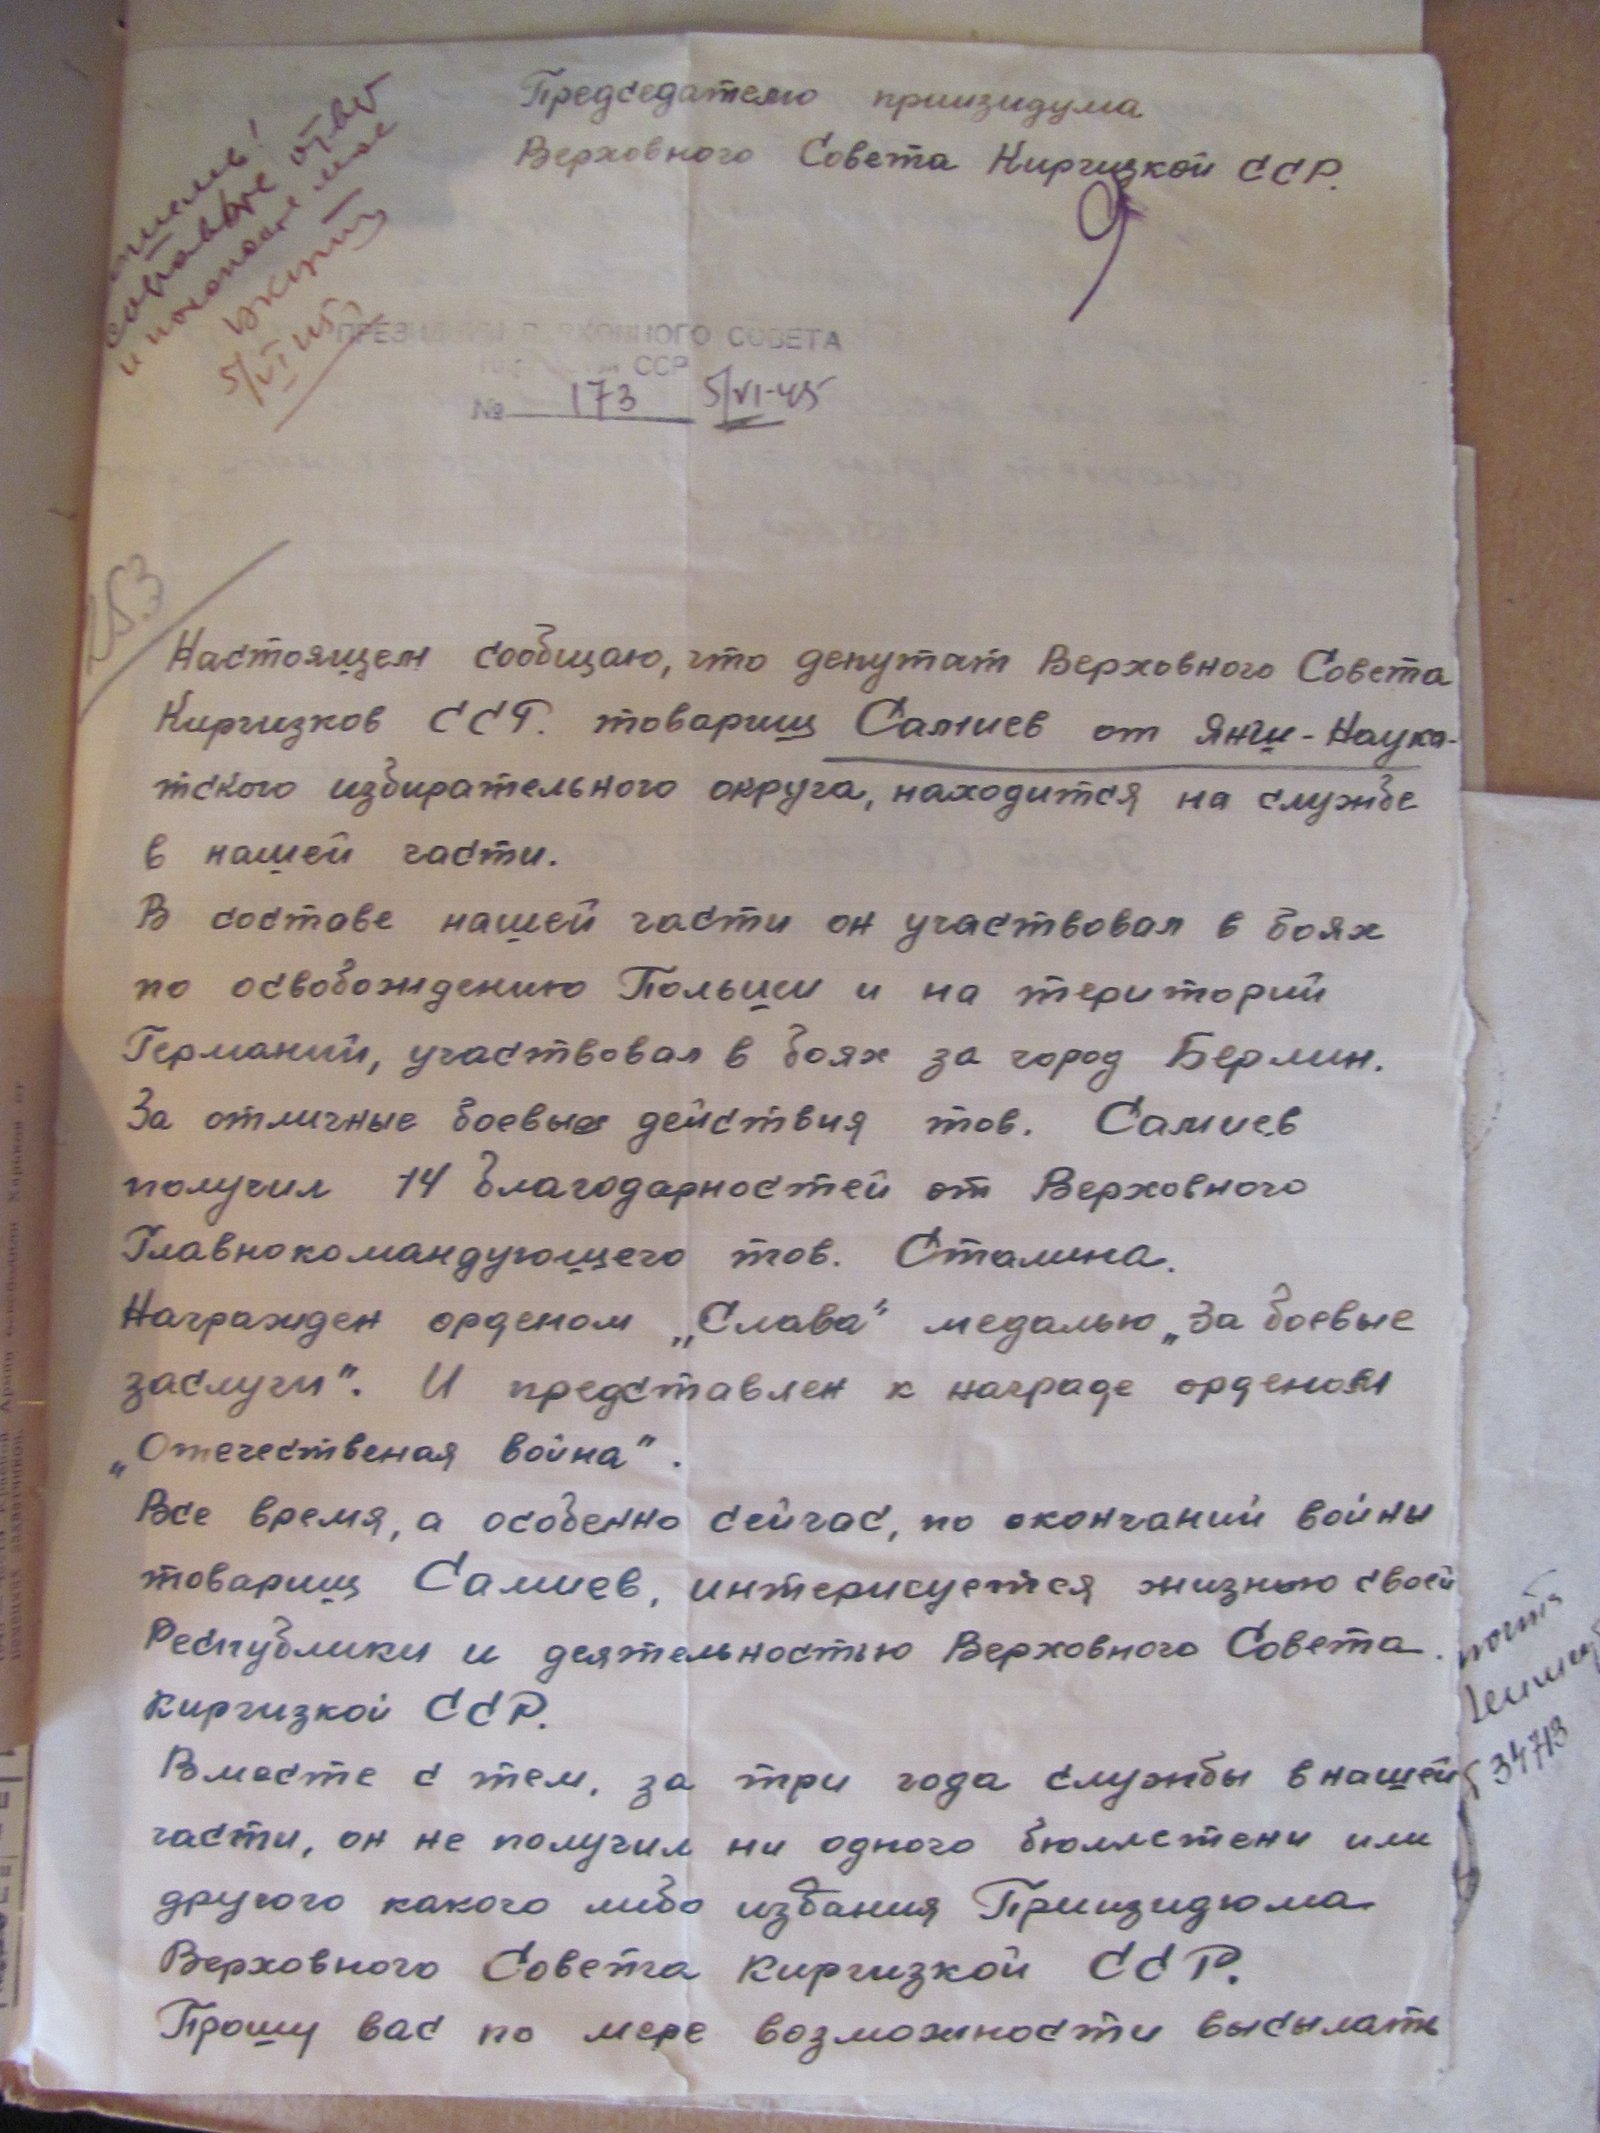 Председателю приизидума
Верховного Совета Киргизкой ССР.
5/VI 45
ПРЕЗИДИУМ ВЕРХОВНОГО СОВЕТА
ССР
№ 173 5/VI-45
253
Настоящем сообщаю, что депутат Верховного Совета
Киргизков ССР. товарищ Салиев от Янги-Наука-
тского избирательного округа, находится на службе
в нашей части.
В составе нашей части он участвовал в боях
по освобождению Польши и на територий
Германий, участвовал в боях за город Берлин.
За отличные боевые действия тов. Салиев
получил 14 благодарностей от Верховного
Главнокомандующего тов. Сталина.
Награжден орденом „Слава" медалью „За боевые
заслуги". И представлен к награде орденом
„Отечественая война".
Все время, а особенно сейчас, по окончаний войны
товарищ Салиев, интерисуется жизнью своей
Республики и деятельностью Верховного Совета.
Киргизкой ССР.
Вместе с тем, за три года службы в нашей
части, он не получил ни одного бюллетени или
другого какого либо издания Приизидюма
Верховного Совета Киргизкой ССР.
Прошу вас по мере возможности высылать
почта
34713